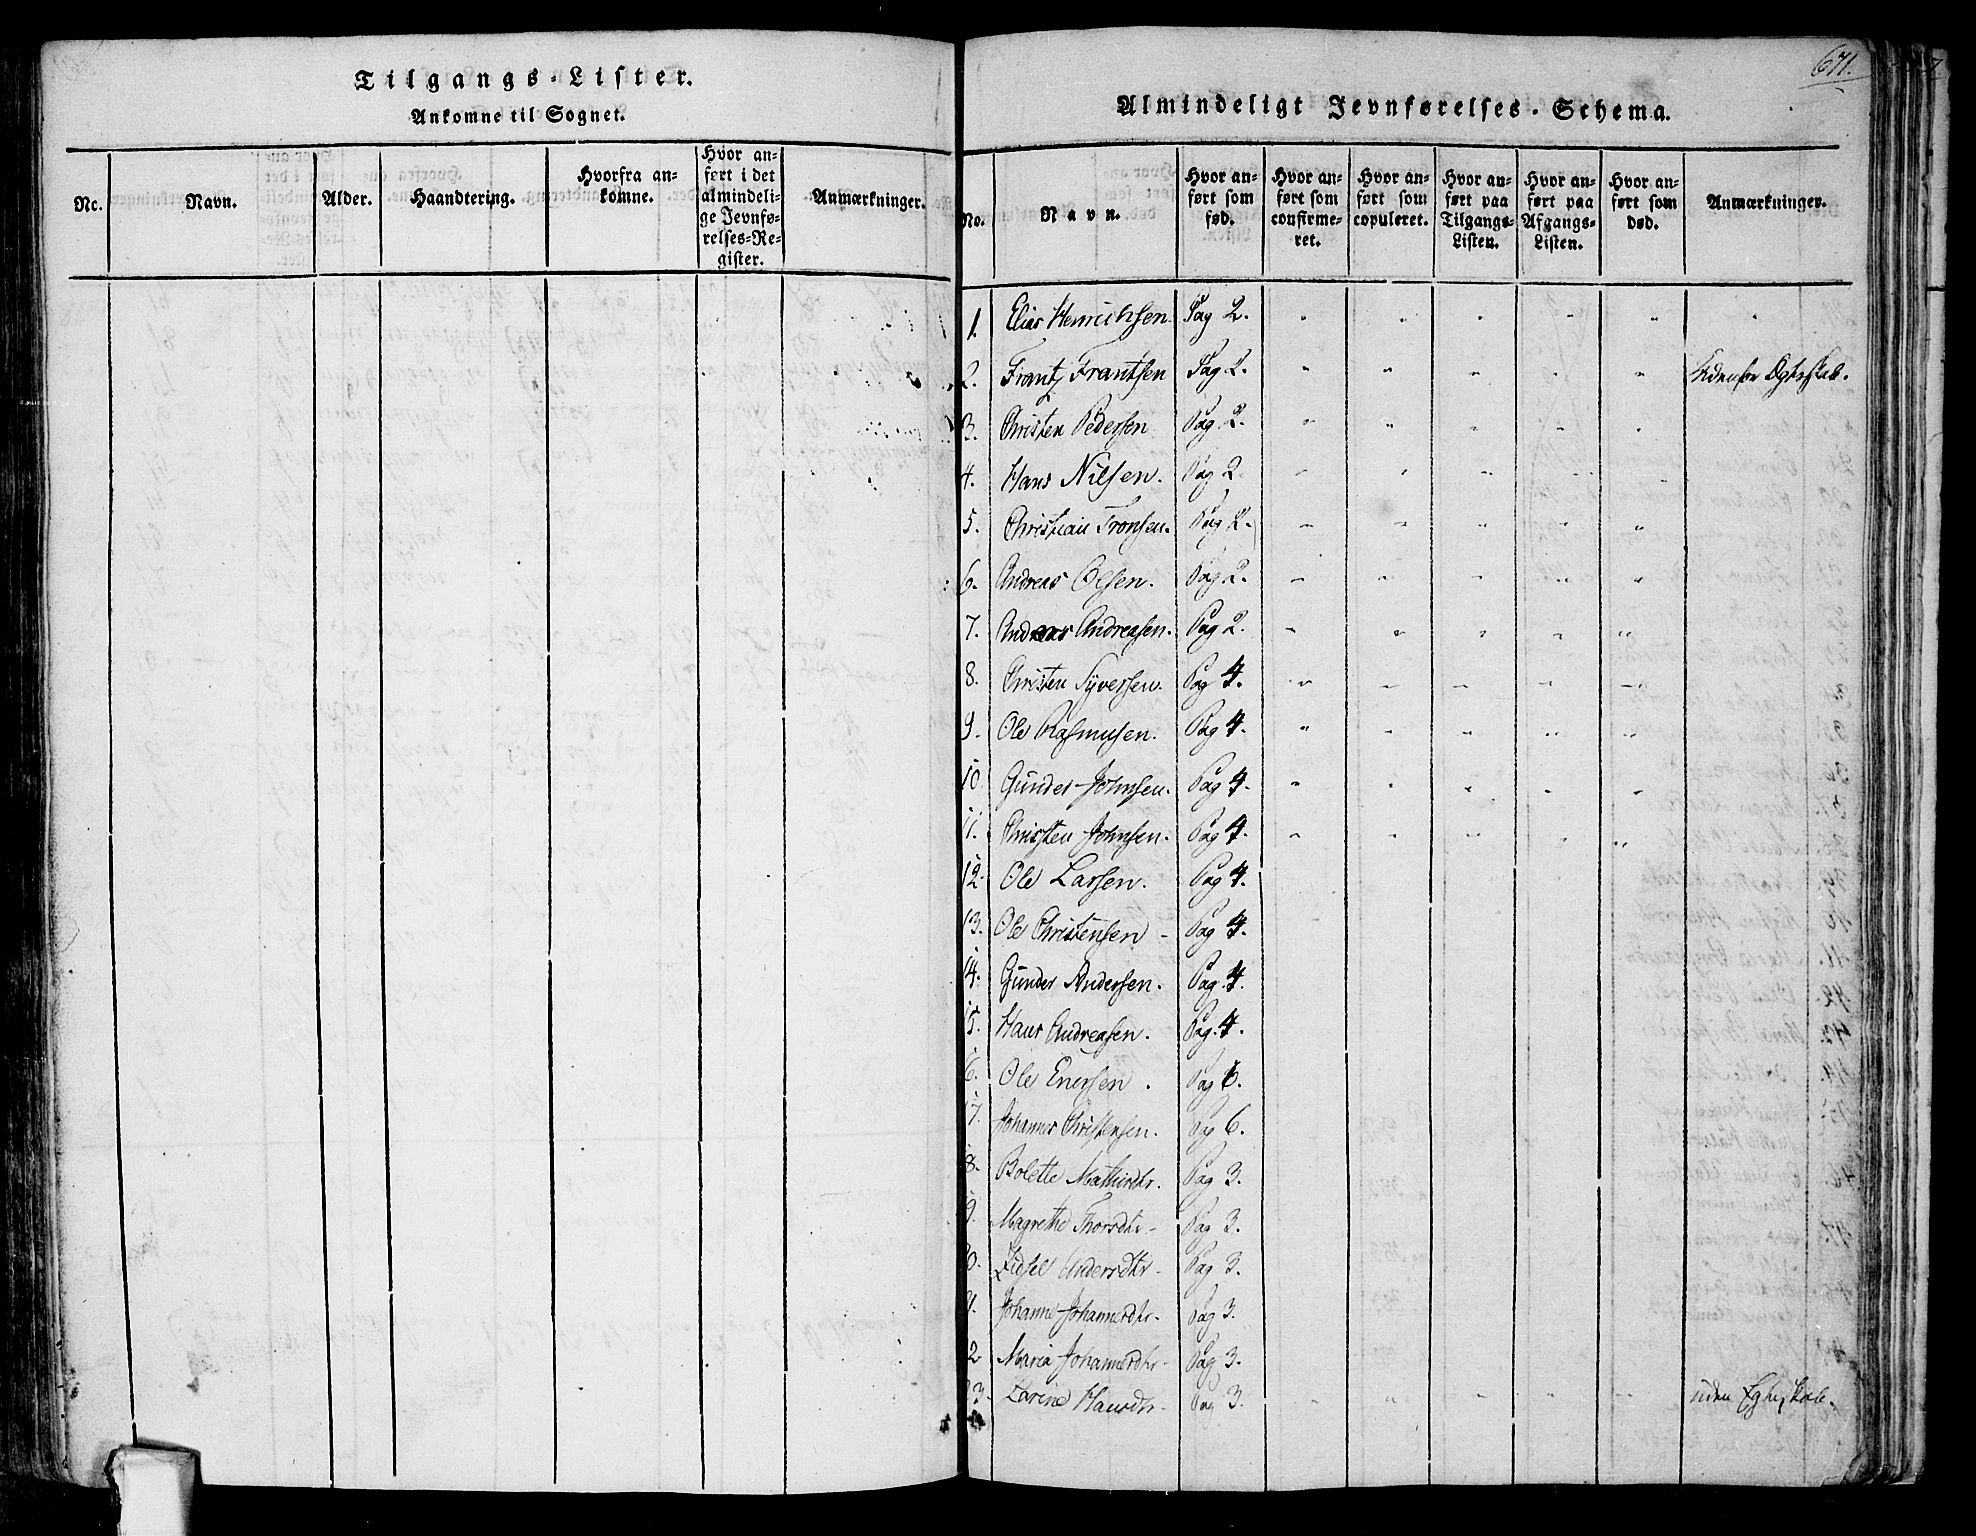 Tilgangs-Lister.
Ankomne til Sognet.
Nc.
Navn.
Alder.
Haandtering.
Hvorfra an-
komne.
Hvor an-
ført i det
almindeli-
ge Jevnfø-
relses-Re-
gister.
Anmærkninger.
671.
Almindeligt Jevnførelses-Schema.
No.
Navn.
Hvor an-
ført som
fød.
Hvor an-
ført som
confirme-
ret.
Hvor an-
ført som
copuleret.
Hvor an-
ført paa
Tilgangs-
Listen.
Hvor an-
ført paa
Afgangs-
Listen.
Hvor an-
ført som
død.
Anmærkninger.
1. Elias Henrichsen Pag 2.
2. Frantz Frantsen Pag 2. Udenfor Ægteskab.
3. Christen Pedersen Pag 2.
4. Hans Nilsen. Pag 2.
5. Christian Tronsen. Pag 2.
6. Andreas Olsen. Pag 2.
7. Andreas Andreasen. Pag 2.
8. Christen Syversen. Pag 4.
9. Ole Rasmusen. Pag 4.
10. Gunder Johnsen. Pag 4.
11. Christen Johnsen. Pag 4.
12. Ole Larsen. Pag 4.
13. Ole Christensen Pag 4.
14. Gunder Andersen. Pag. 4.
15. Hans Andreasen. Pag. 4.
6. Ole Enersen. Pag 6.
17. Johannes Christensen. Pag 6.
8. Bolette Mathisdtr. Pag 3.
9. Magrethe Thorsdtr. Pag 3.
0. Zidsel Andersdtr. Pag 3.
1. Johanne Johannesdtr. Pag 3.
2 Maria Johannesdtr. Pag 3.
3. Karine Hansdtr. Pag 3. uden Egteskab.